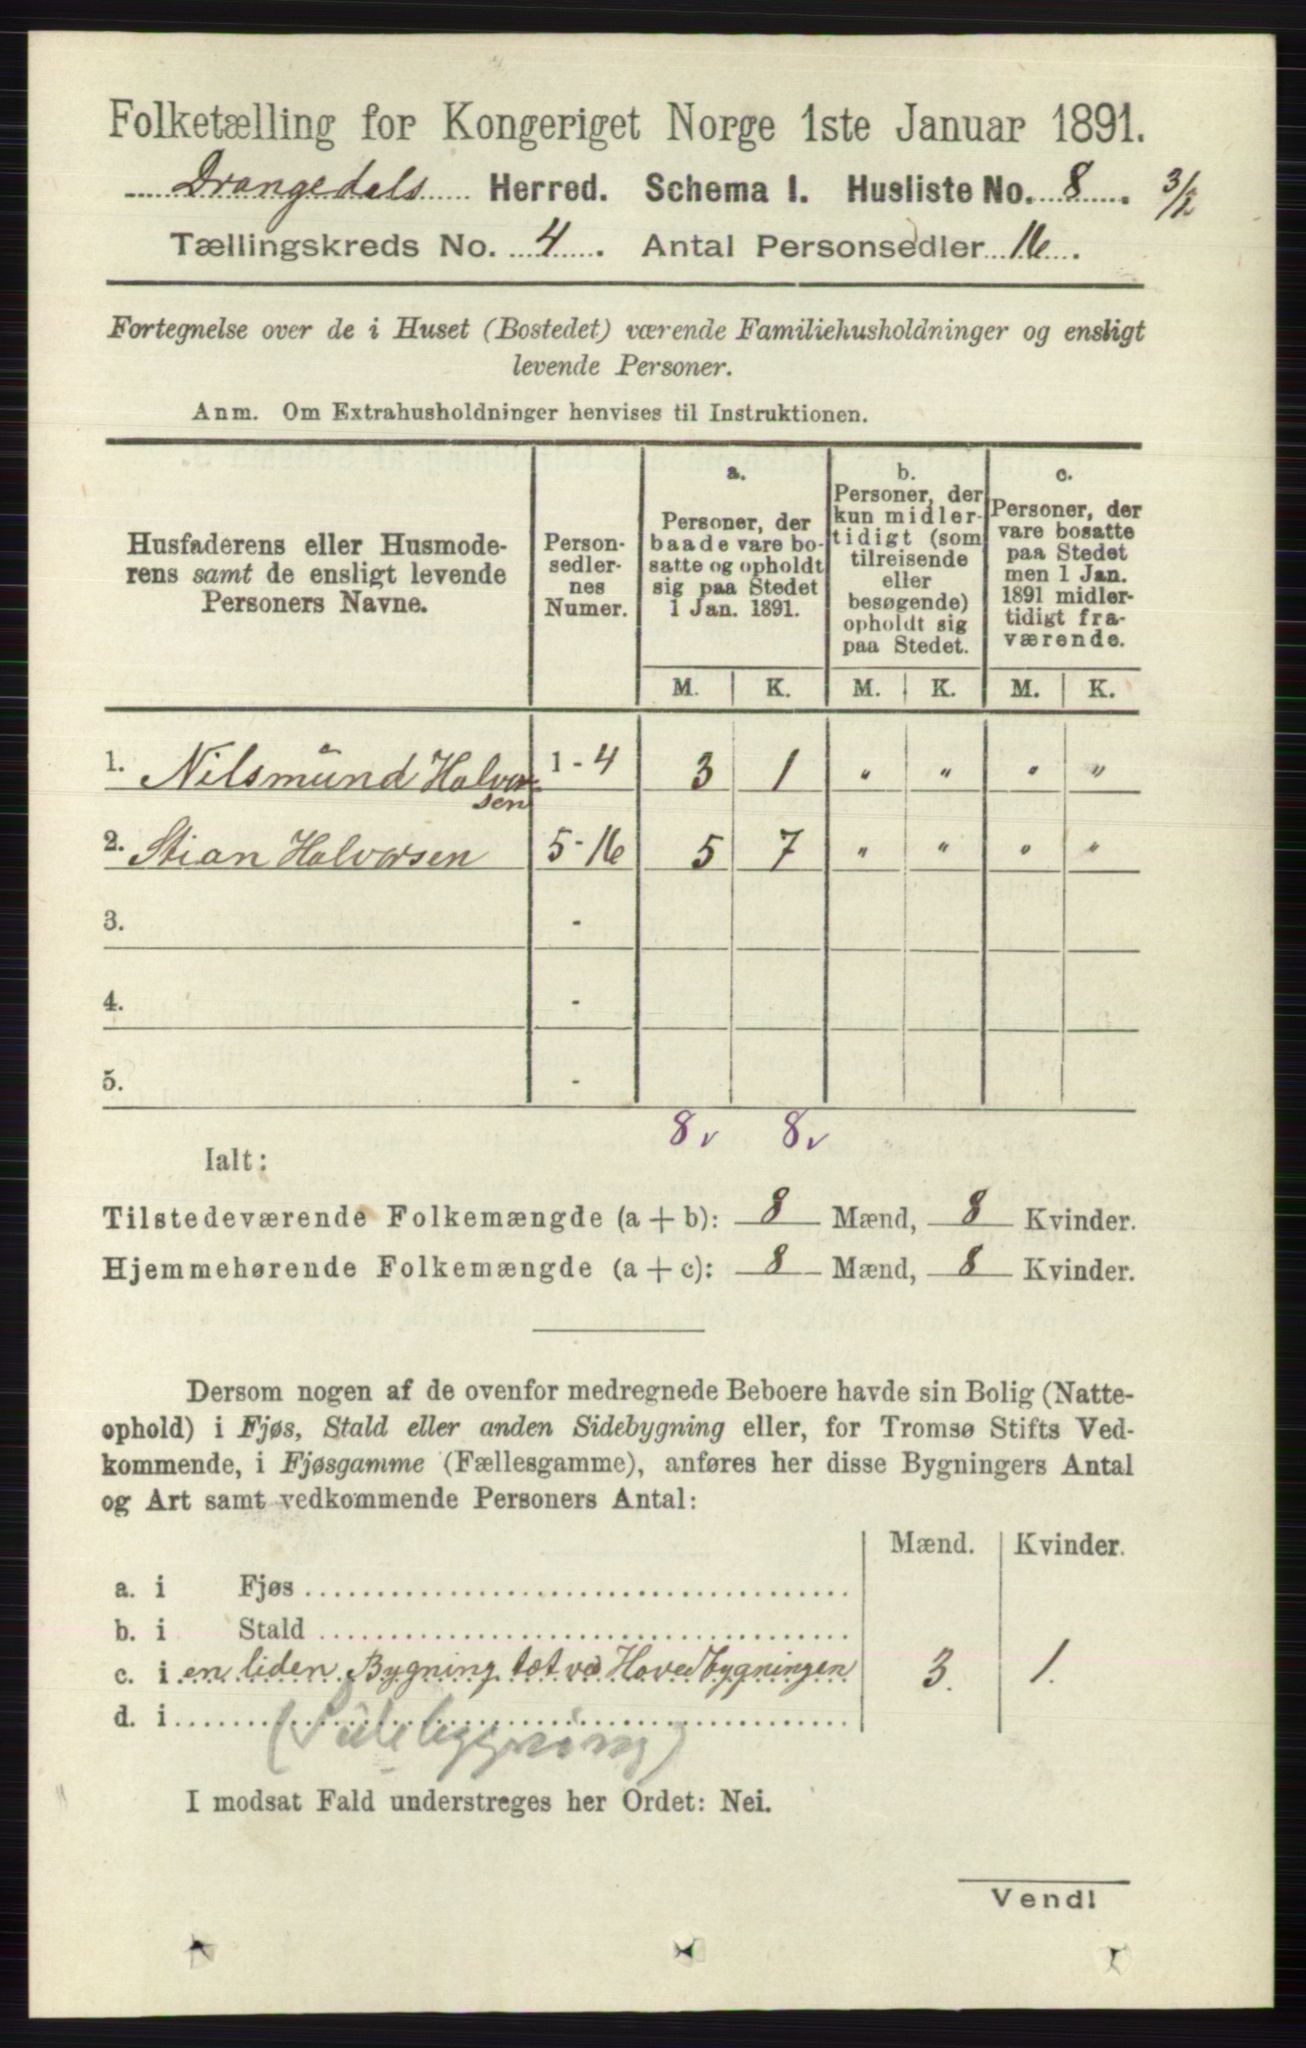 Folketælling for Kongeriget Norge 1ste Januar 1891.
Drangedals Herred. Schema I. Husliste No. 8. 3/2
Tællingskreds No. 4. Antal Personsedler 16.
Fortegnelse over de i Huset (Bostedet) værende Familiehusholdninger og ensligt
levende Personer.
Anm. Om Extrahusholdninger henvises til Instruktionen.
Husfaderens eller Husmode-
rens samt de ensligt levende
Personers Navne.
Person-
sedler-
nes
Numer.
a.
Personer, der
baade vare bo-
satte og opholdt
sig paa Stedet
1 Jan. 1891.
b.
Personer, der
kun midler-
tidigt (som
tilreisende
eller
besøgende)
opholdt sig
paa Stedet.
c.
Personer, der
vare bosatte
paa Stedet
men 1 Jan.
1891 midler-
tidigt fra-
værende.
M. K. M. K. M. K.
1. Nilsmund Halvor- 1 - 4 3 1 " " " "
sen
2. Stian Halvorsen 5 - 16 5 7 " " " "
3. -
4. -
5. -
8 v 8 v
Ialt:
Tilstedeværende Folkemængde (a + b): 8 Mænd, 8 Kvinder.
Hjemmehørende Folkemængde (a + c): 8 Mænd, 8 Kvinder.
Dersom nogen af de ovenfor medregnede Beboere havde sin Bolig (Natte-
ophold) i Fjøs, Stald eller anden Sidebygning eller, for Tromsø Stifts Ved-
kommende, i Fjøsgamme (Fællesgamme), anføres her disse Bygningers Antal
og Art samt vedkommende Personers Antal:
Mænd. Kvinder.
a. i Fjøs
b. i Stald
c. i en liden Bygning tæt ved Hovedbygningen 3. 1.
d. i
(Sidebygning)
I modsat Fald understreges her Ordet: Nei.
Vend!